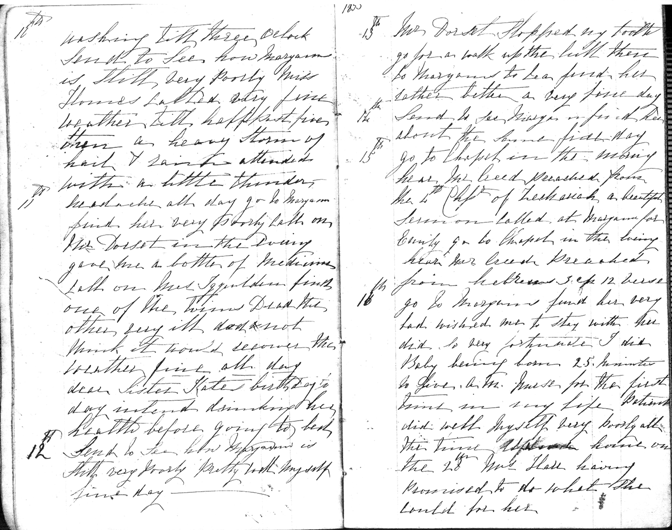 10th washing till three Oclock
Send to See how Maryann
is Still very Poorly Miss
Homes Called very fine
weather till half past five
then a heavy Storm of
hail & rain attended
with a little thunder
11th headache all day go to Maryann
find her very poorly Call on
Mr Dorset in the evening
gave me a bottle of Medicine
Call on Mrs Iggulden finds
one of the twins Dead the
other very ill does not
think it would recover the
weather fine all day
dear Sister Kates birthday to
day intend drinking her
health before going to bed
12th Send to See how Maryann is
Still very Poorly Pretty well Myself
fine day
1855
13th Mr Dorset Stopped my tooth
go for a walk up the hill then
to Maryanns to tea find her
rather better a very fine day
14th Send to See Maryann find her
about the Same fine day
15th go to Chapel in the morning
hear Mr Creed preached from
the 4th Chpt of Zechariah a beautiful
Sermon Called at Maryanns for
Emily go to Chapel in the evning
hear Mr Creed Preached
from hebrews 3 cp 12 verse
16th go to Maryanns find her very
bad wished me to stay with her
did so very fortunate I did
Baby being born 25 Minutes
to five A.M. Nurse for the first
time in my life Patient
did well Myself very Poorly all
the time home on
the 28th Mrs Hall having
promised to do what She
could for her